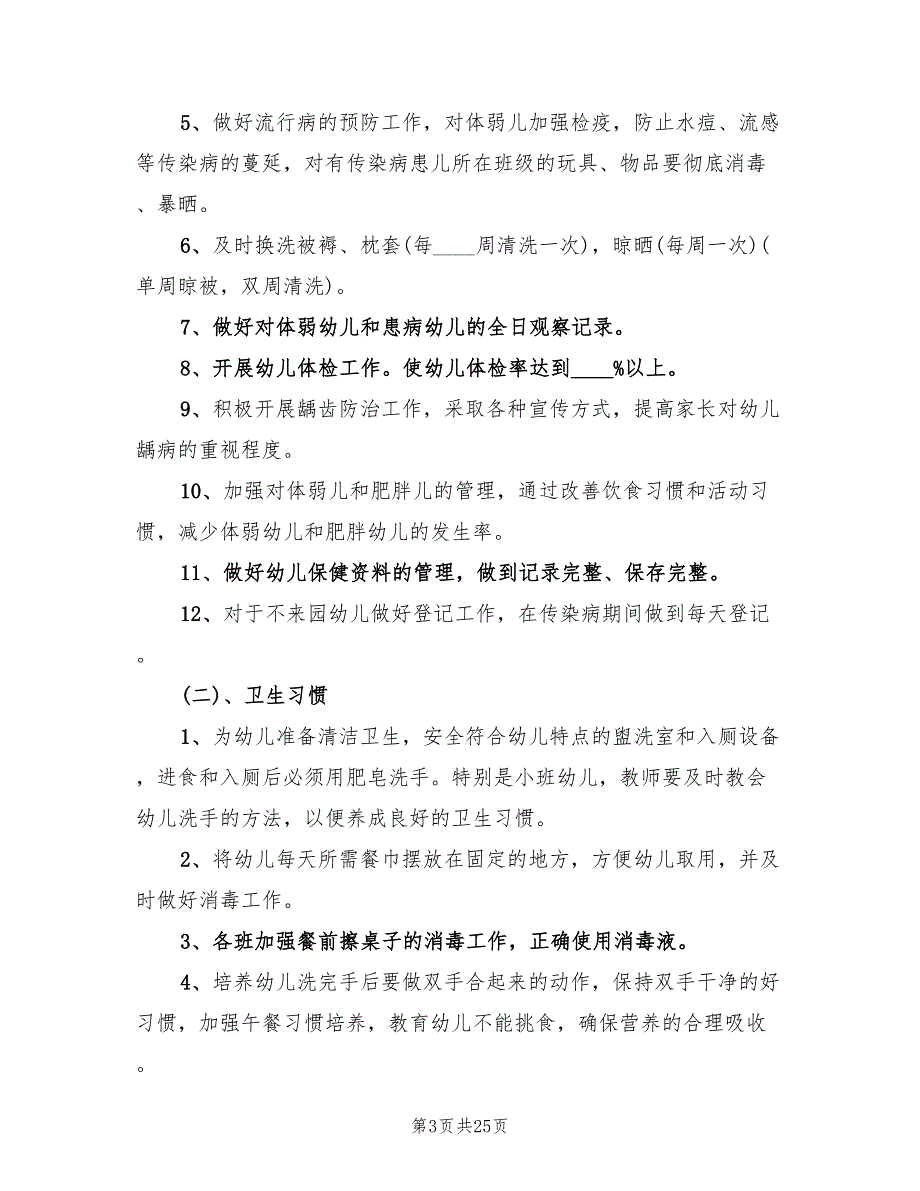 5、做好流行病的预防工作，对体弱儿加强检疫，防止水痘、流感
等传染病的蔓延，对有传染病患儿所在班级的玩具、物品要彻底消毒
、暴晒。
6、及时换洗被褥、枕套(每____周清洗一次)，晾晒(每周一次)(
单周晾被，双周清洗)。
7、做好对体弱幼儿和患病幼儿的全日观察记录。
8、开展幼儿体检工作。使幼儿体检率达到____%以上。
9、积极开展龋齿防治工作，采取各种宣传方式，提高家长对幼儿
龋病的重视程度。
10、加强对体弱儿和肥胖儿的管理，通过改善饮食习惯和活动习
惯，减少体弱幼儿和肥胖幼儿的发生率。
11、做好幼儿保健资料的管理，做到记录完整、保存完整。
12、对于不来园幼儿做好登记工作，在传染病期间做到每天登记
。
(二)、卫生习惯
1、为幼儿准备清洁卫生，安全符合幼儿特点的盥洗室和入厕设备
，进食和入厕后必须用肥皂洗手。特别是小班幼儿，教师要及时教会
幼儿洗手的方法，以便养成良好的卫生习惯。
2、将幼儿每天所需餐巾摆放在固定的地方，方便幼儿取用，并及
时做好消毒工作。
3、各班加强餐前擦桌子的消毒工作，正确使用消毒液。
4、培养幼儿洗完手后要做双手合起来的动作，保持双手干净的好
习惯，加强午餐习惯培养，教育幼儿不能挑食，确保营养的合理吸收
。
第3页共25页